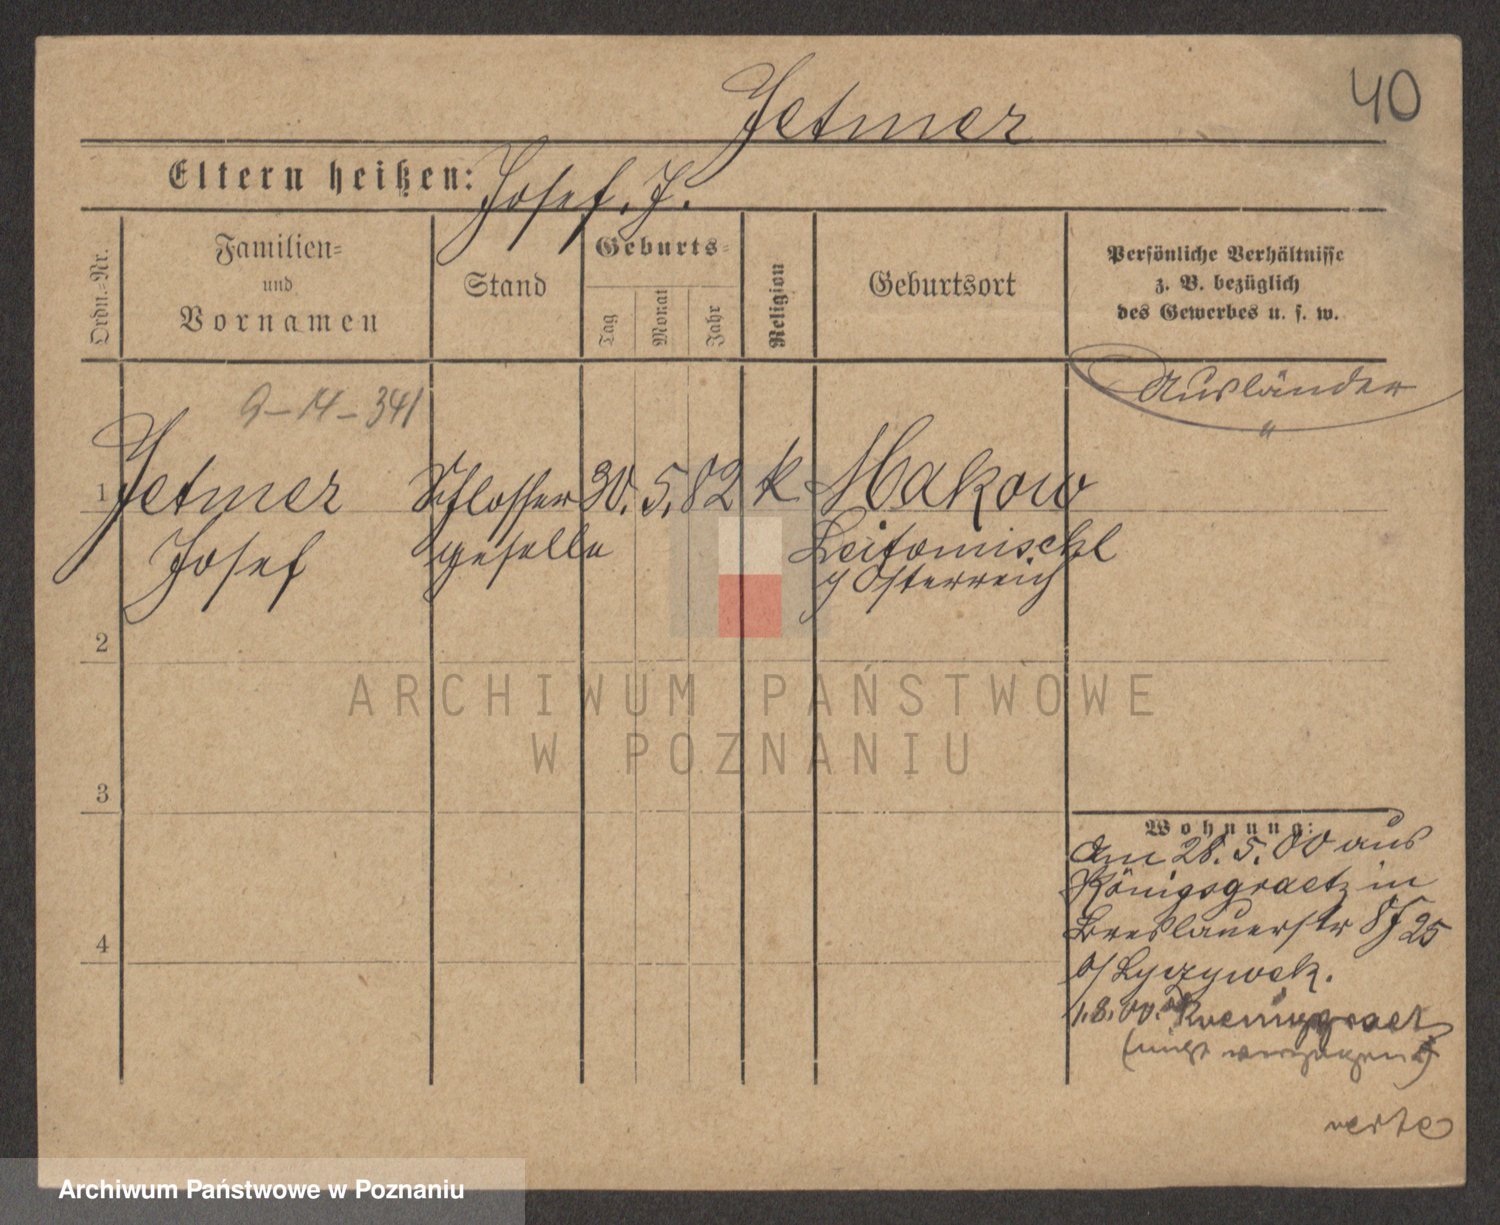 40
Jetmer
Eltern heißen: Josef. J.
Ordn.-Nr.
Familien-
und
Vornamen
Stand
Geburts-
Tag
Monat
Jahr
Religion
Geburtsort
Persönliche Verhältnisse
z. B. bezüglich
des Gewerbes u. s. w.
Ausländer
9-14-341
1 Jetmer Schlosser 30. 5. 82 k Makow
Josef geselle Leitomischl
Österreich
2
ARCHIWUM PAŃSTWOWE
W POZNANIU
3
Wohnung:
Am 28. 5. 00 aus
Königsgraetz in
Breslauerstr 25
b/ Lyczywek.
1.8.00. Koeniggraetz
(nicht verzogen)
4
verte
Archiwum Państwowe w Poznaniu